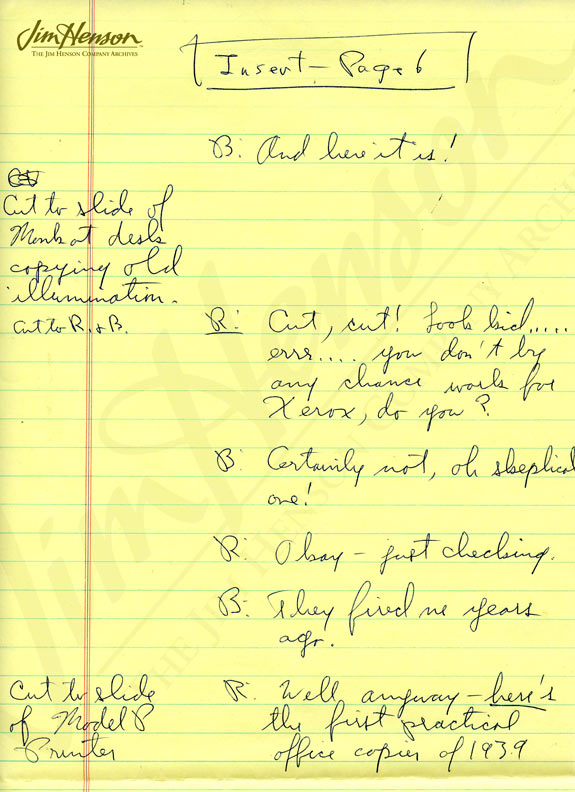 Jim Henson™
THE JIM HENSON COMPANY ARCHIVES
Insert - Page 6
B: And here it is!
Cut to slide of
Monk at desk
copying old
illumination.
Cut to R. & B.
R: Cut, cut! Look kid.....
errr.... you don't by
any chance work for
Xerox, do you?
B: Certainly not, oh skeptical
one!
R: Okay - just checking.
B: They fired me years
ago.
Cut to slide
of Model P
Printer
R: Well, anyway - here's
the first practical
office copier of 1939